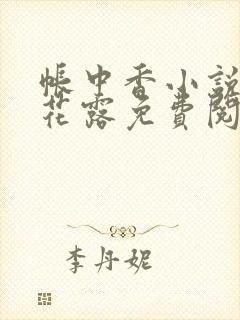 帳中香小説
花露免費閱
李丹妮